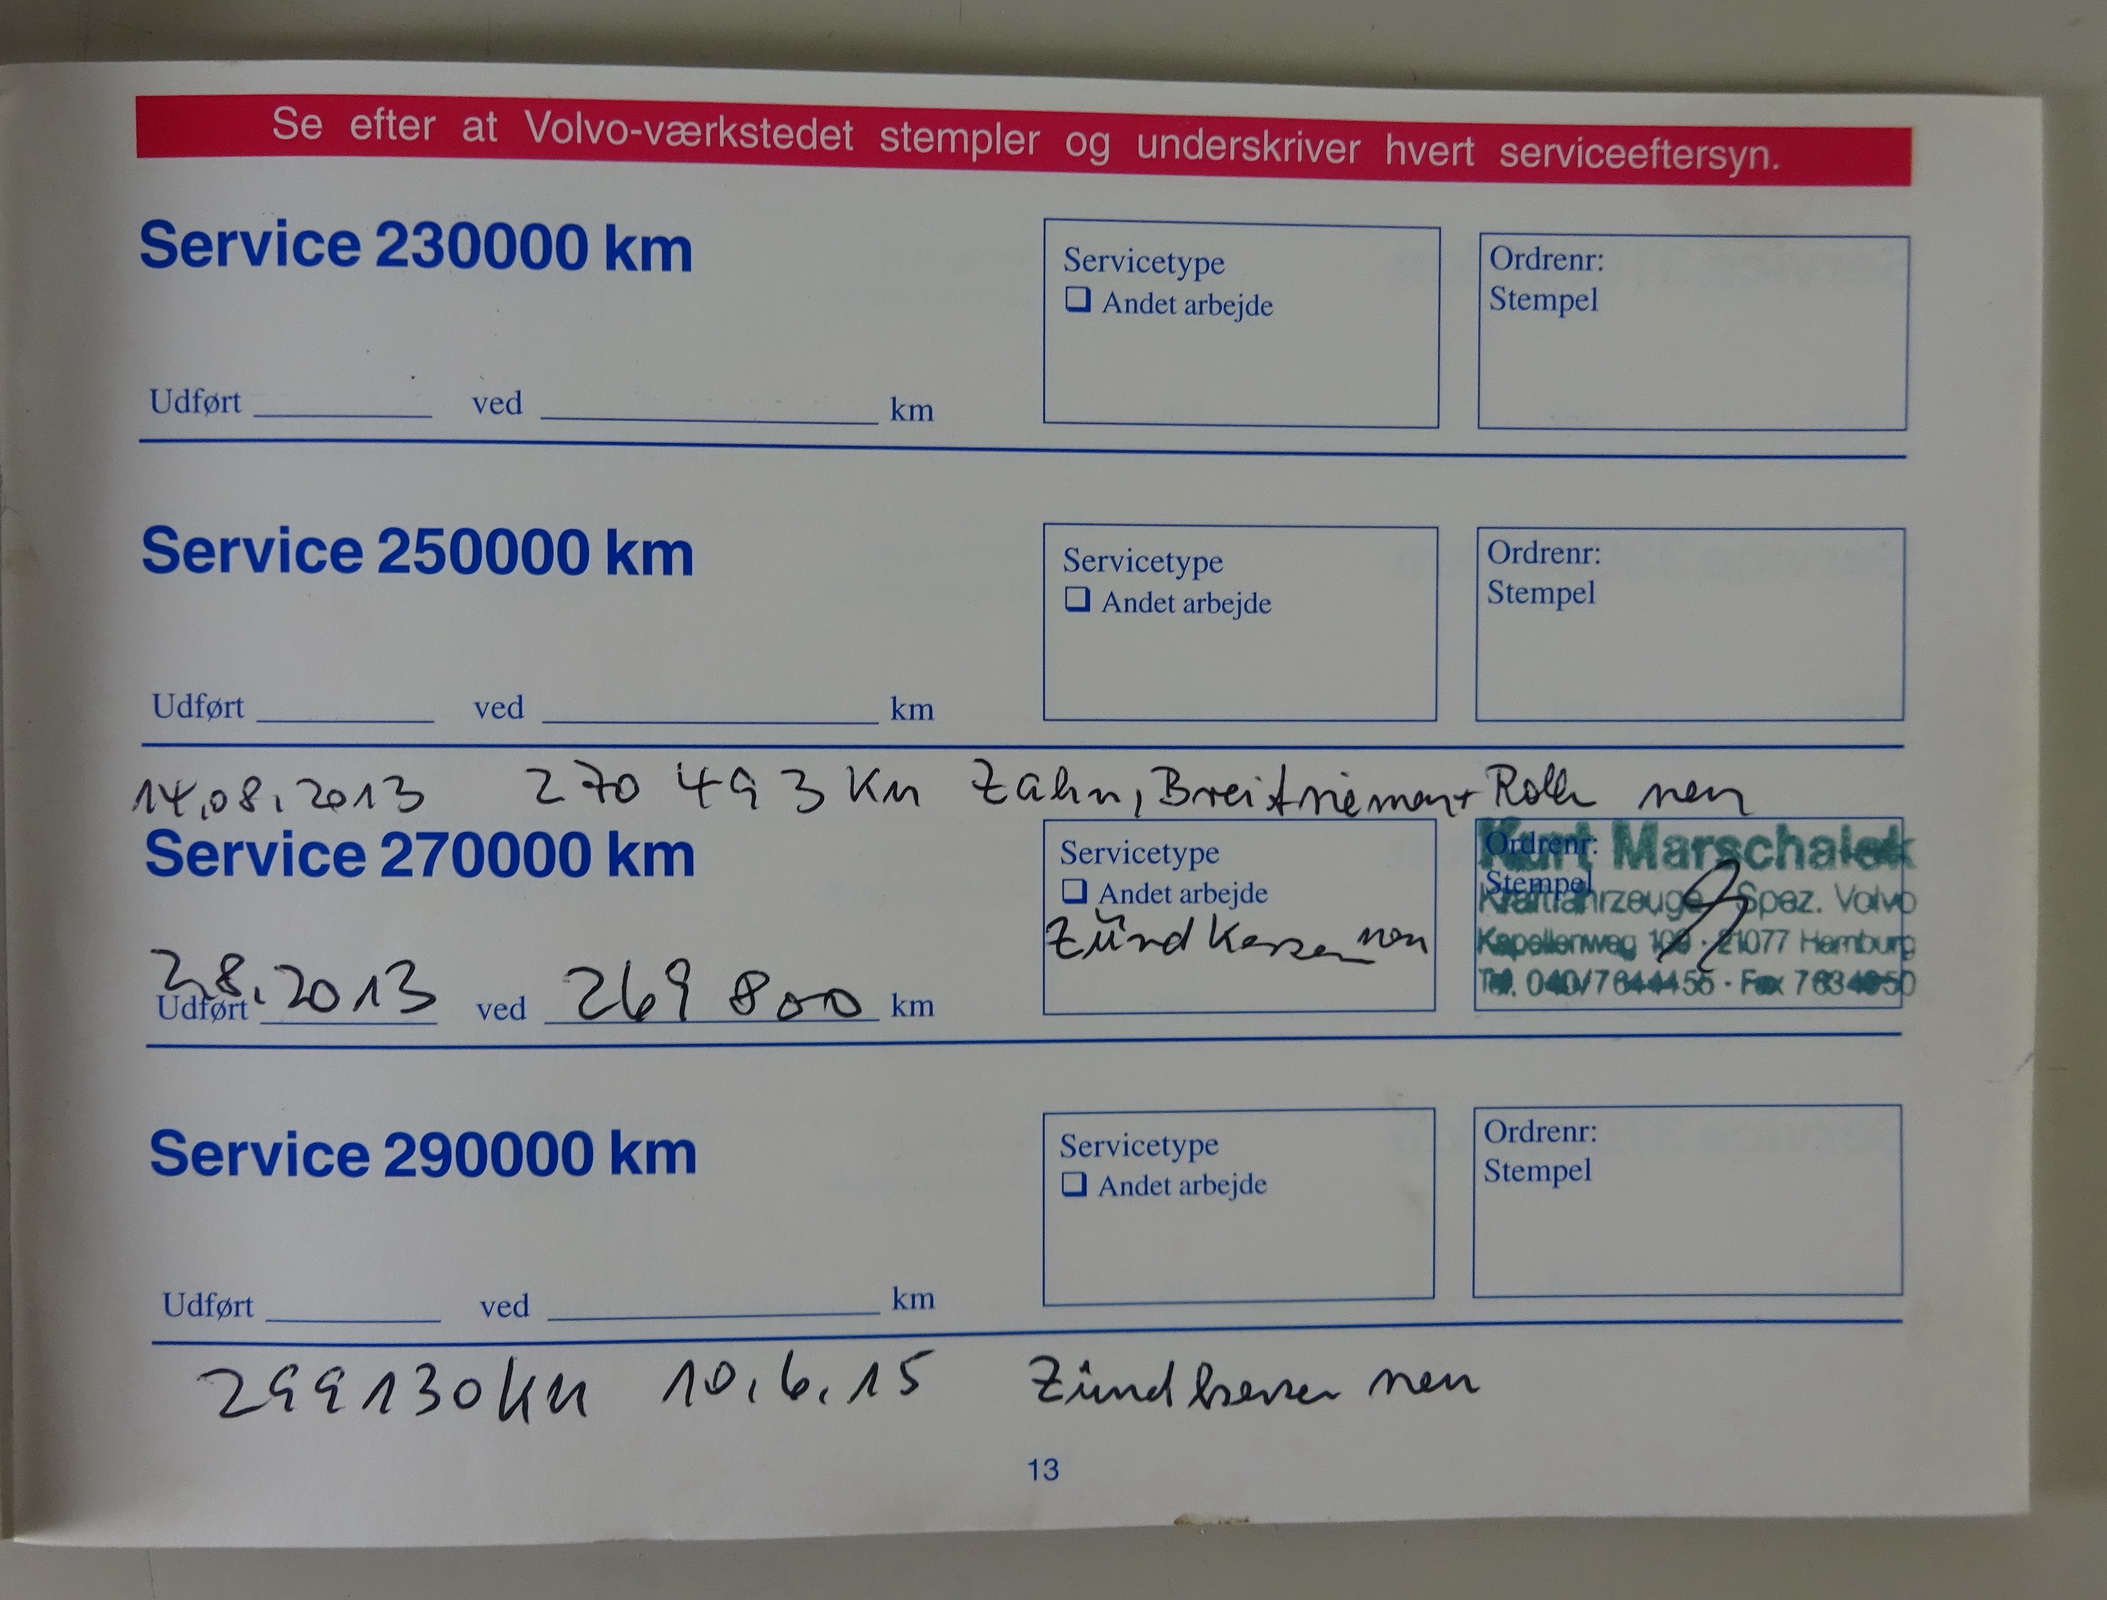 Se efter at Volvo-værkstedet stempler og underskriver hvert serviceeftersyn.
Service 230000 km
Servicetype
Andet arbejde
Ordrenr:
Stempel
Udført ved km
Service 250000 km
Servicetype
Andet arbejde
Ordrenr:
Stempel
Udført ved km
14.08.2013 270 493 km Zahn, Breitriemen + Rolle neu
Service 270000 km
Servicetype
Andet arbejde
Zündkerzen neu
Ordrenr:
Stempel
Kurt Marschalek
Kraftfahrzeuge Spez. Volvo
Kapellenweg 21077 Hamburg
Tel. 040/7644455 · Fax
Udført 2.8.2013 ved 269 800 km
Service 290000 km
Servicetype
Andet arbejde
Ordrenr:
Stempel
Udført ved km
299130 km 10.6.15 Zündkerzen neu
13